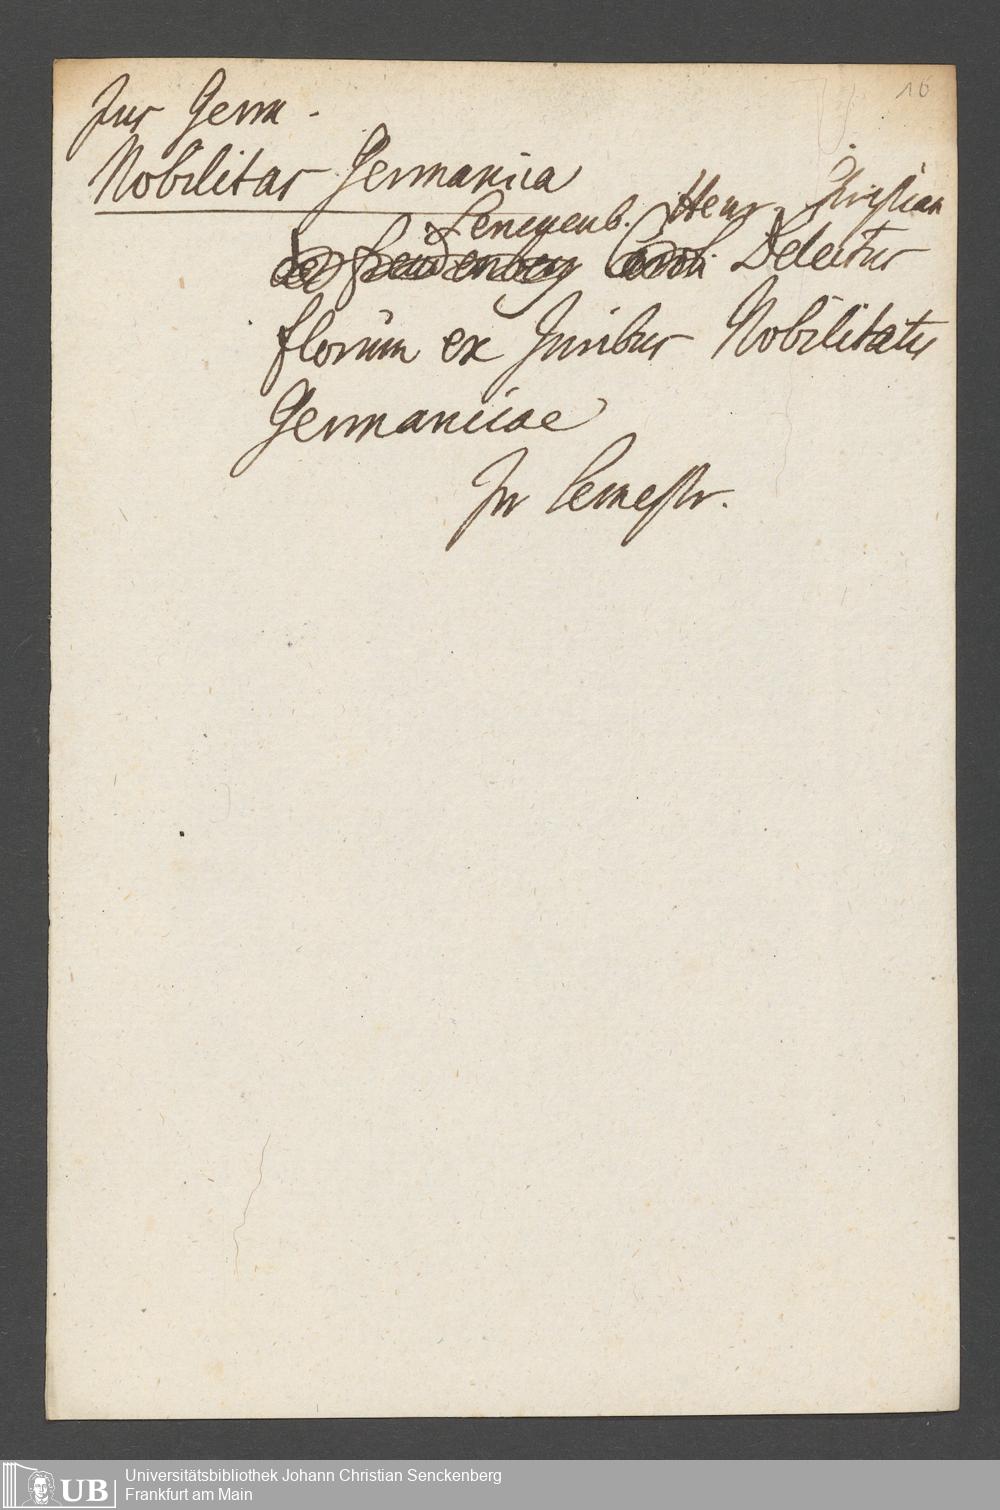 16
Jus Germ.
Nobilitas Germanica
Sencqenb. Henr. Christian
Delectus
florum ex Juribus Nobilitatis
Germanicae
In Semestr.
UB Universitätsbibliothek Johann Christian Senckenberg
Frankfurt am Main